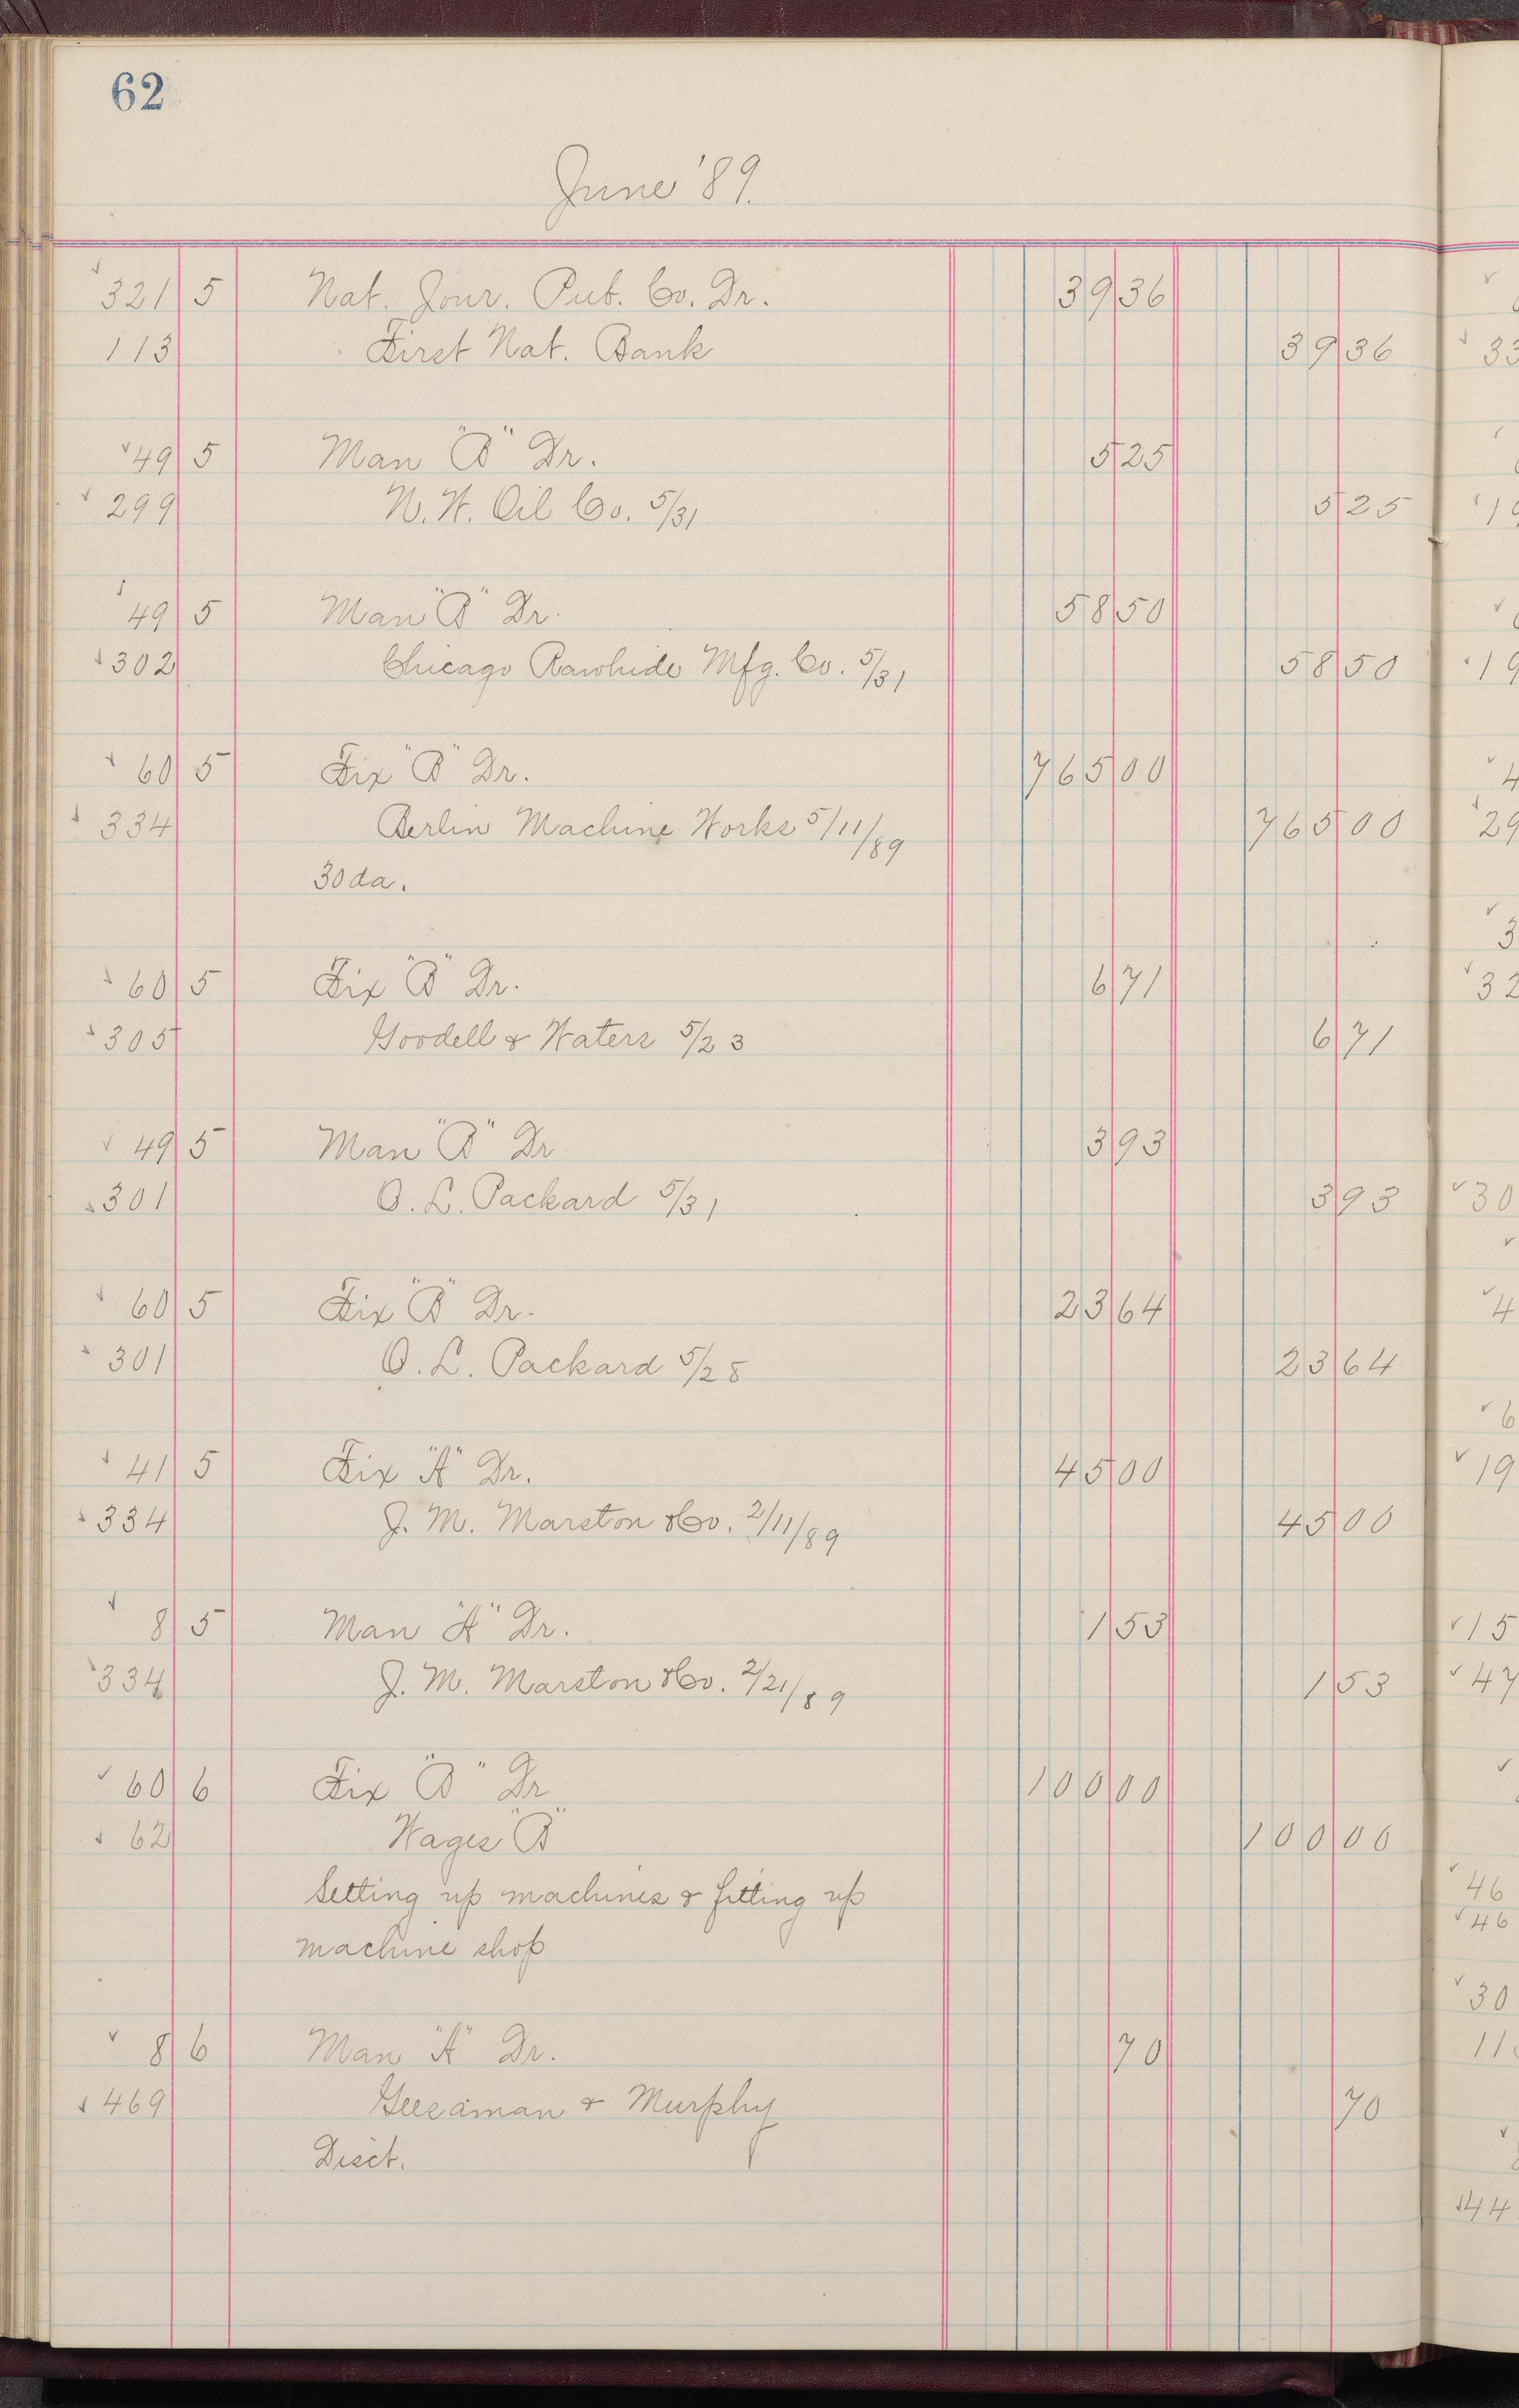 62
June '89.
321 5 Nat. Jour. Pub. Co. Dr. 39 36
113 First Nat. Bank 39 36
49 5 Man "B" Dr. 5 25
299 N. W. Oil Co. 5/31 5 25
49 5 Man "B" Dr. 58 50
302 Chicago Rawhide Mfg. Co. 5/31 58 50
60 5 Fix "B" Dr. 765 00
334 Berlin Machine Works 5/11/89 765 00
30 da.
60 5 Fix "B" Dr. 6 71
305 Goodell & Waters 5/23 6 71
49 5 Man "B" Dr 3 93
301 O. L. Packard 5/31 3 93
60 5 Fix "B" Dr. 23 64
301 O. L. Packard 5/28 23 64
41 5 Fix "A" Dr. 45 00
334 J. M. Marston & Co. 2/11/89 45 00
8 5 Man "A" Dr. 1 53
334 J. M. Marston & Co. 2/21/89 1 53
60 6 Fix "B" Dr 100 00
62 Wages "B" 100 00
Setting up machines & fitting up
machine shop
8 6 Man "A" Dr. 70
469 Geesaman & Murphy 70
Disct.